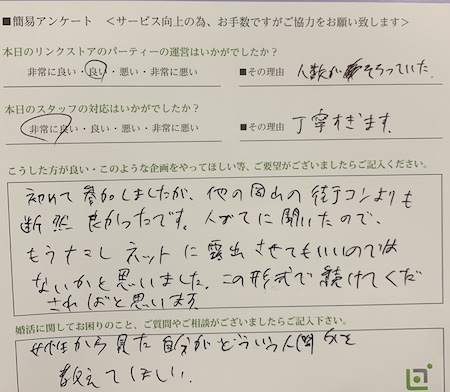 ■簡易アンケート　＜サービス向上の為、お手数ですがご協力をお願い致します＞
本日のリンクストアのパーティーの運営はいかがでしたか？
非常に良い・良い・悪い・非常に悪い　■その理由　人数がそろっていた。
本日のスタッフの対応はいかがでしたか？
非常に良い・良い・悪い・非常に悪い　■その理由　丁寧すぎます。
こうした方が良い・このような企画をやってほしい等、ご要望がございましたらご記入ください。
初めて参加しましたが、他の岡山の街コンよりも
断然良かったです。人づてに聞いたので、
もうすこしネットに露出させてもいいのでは
ないかと思いました。この形式で続けてくだ
さればと思います
婚活に関してお困りのこと、ご質問やご相談がございましたらご記入下さい。
女性から見た自分がどういう人間かを
教えてほしい。